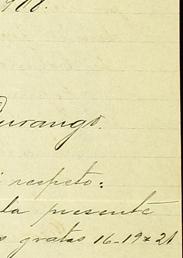 Durango.
respeto:
la presente
gratas 16-19 & 21